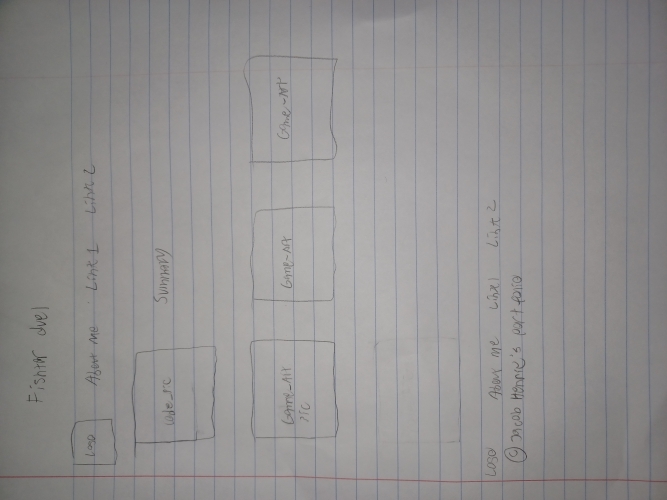 Fishtar duel
Logo About me Link 1 Link 2
Code_PC Summary
Game_Art Game-Art Game-Art
PC
Logo About me Link 1 Link 2
© Jacob Henrie's portfolio